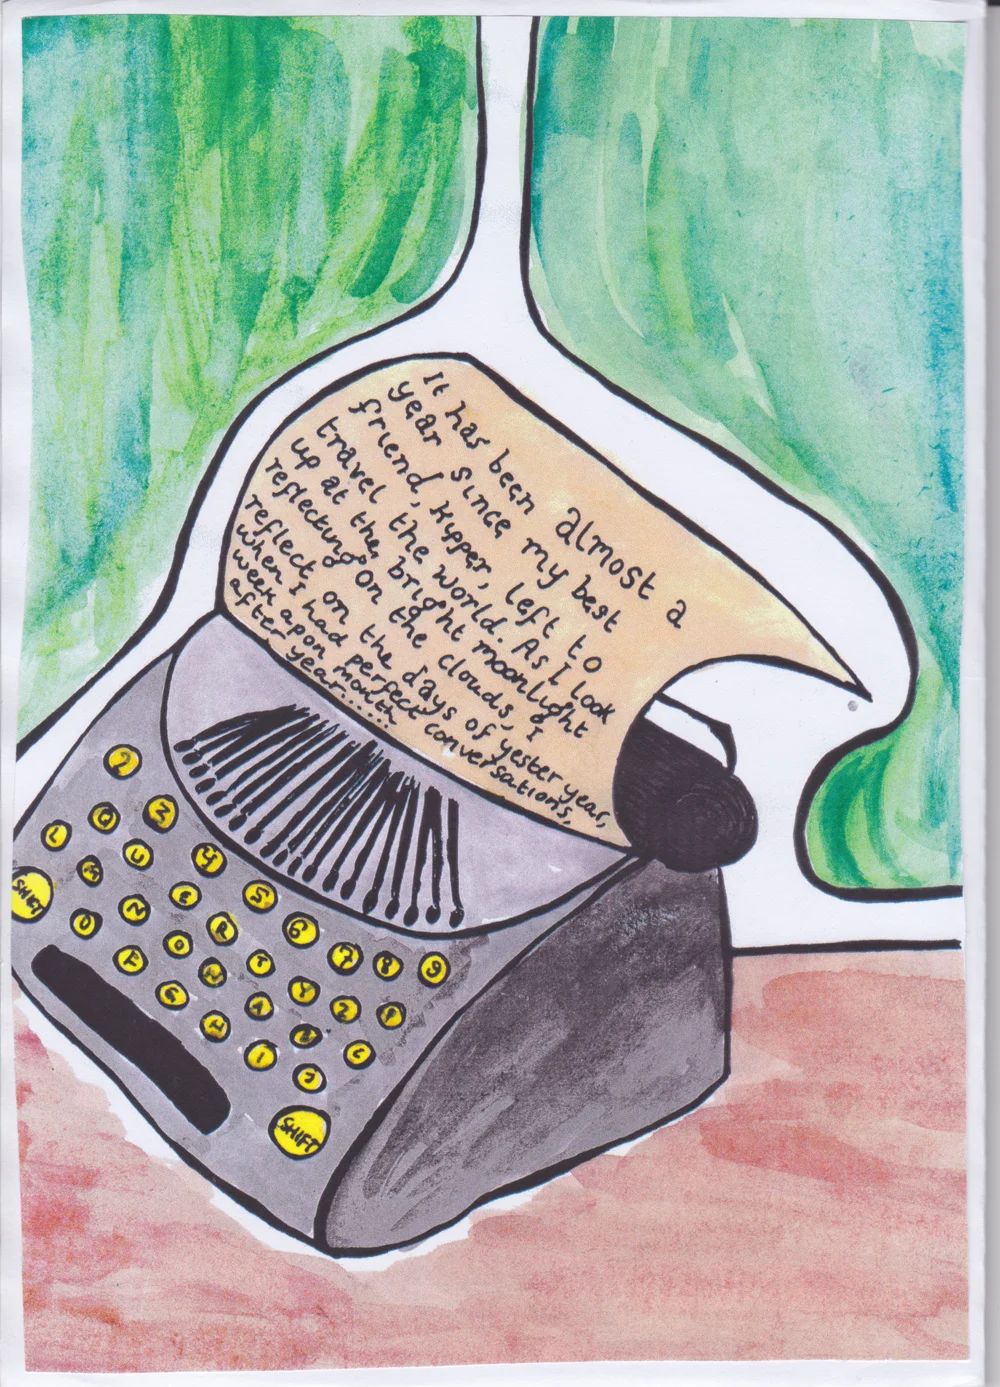 It has been almost a
year since my best
friend, Kipper, left to
travel the world. As I look
up at the bright moonlight
reflecting on the clouds, I
reflect on the days of yester year,
when I had perfect conversations,
week apon month
after year......
2 3 4 5 6 7 8 9
Q U E R T Y 2 P
L M N O
SHIFT U F G H I J SHIFT